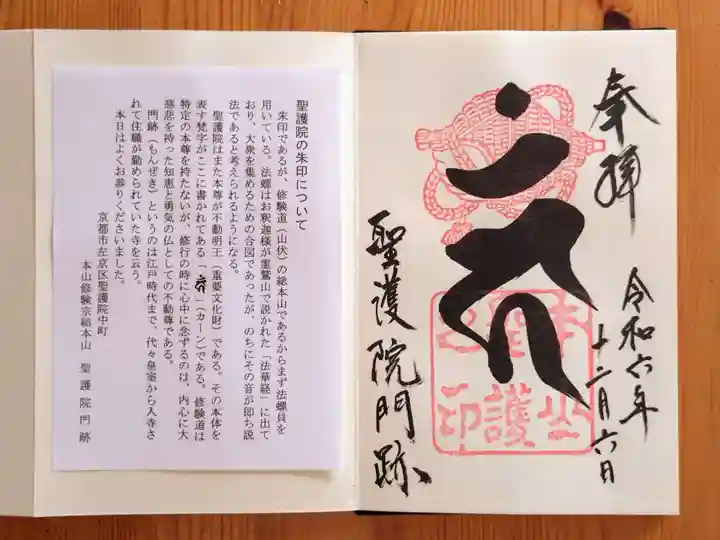 奉拝
令和六年
十二月六日
聖護院門跡
本山
聖護
院印
聖護院の朱印について
朱印であるが、修験道（山伏）の総本山であるからまず法螺貝を
用いている。法螺はお釈迦様が霊鷲山で説かれた「法華経」に出て
おり、大衆を集めるための合図であったが、のちにその音が即ち説
法であると考えられるようになる。
聖護院はまた本尊が不動明王（重要文化財）である。その本体を
表す梵字がここに書かれてある「」（カーン）である。修験道は
特定の本尊を持たないが、修行の時に心中に念ずるのは、内心に大
慈悲を持った知恵と勇気の仏としての不動尊である。
門跡（もんぜき）というのは江戸時代まで、代々皇室から入寺さ
れて住職が勤められていた寺を云う。
本日はよくお参りくださいました。
京都市左京区聖護院中町
本山修験宗総本山　聖護院門跡